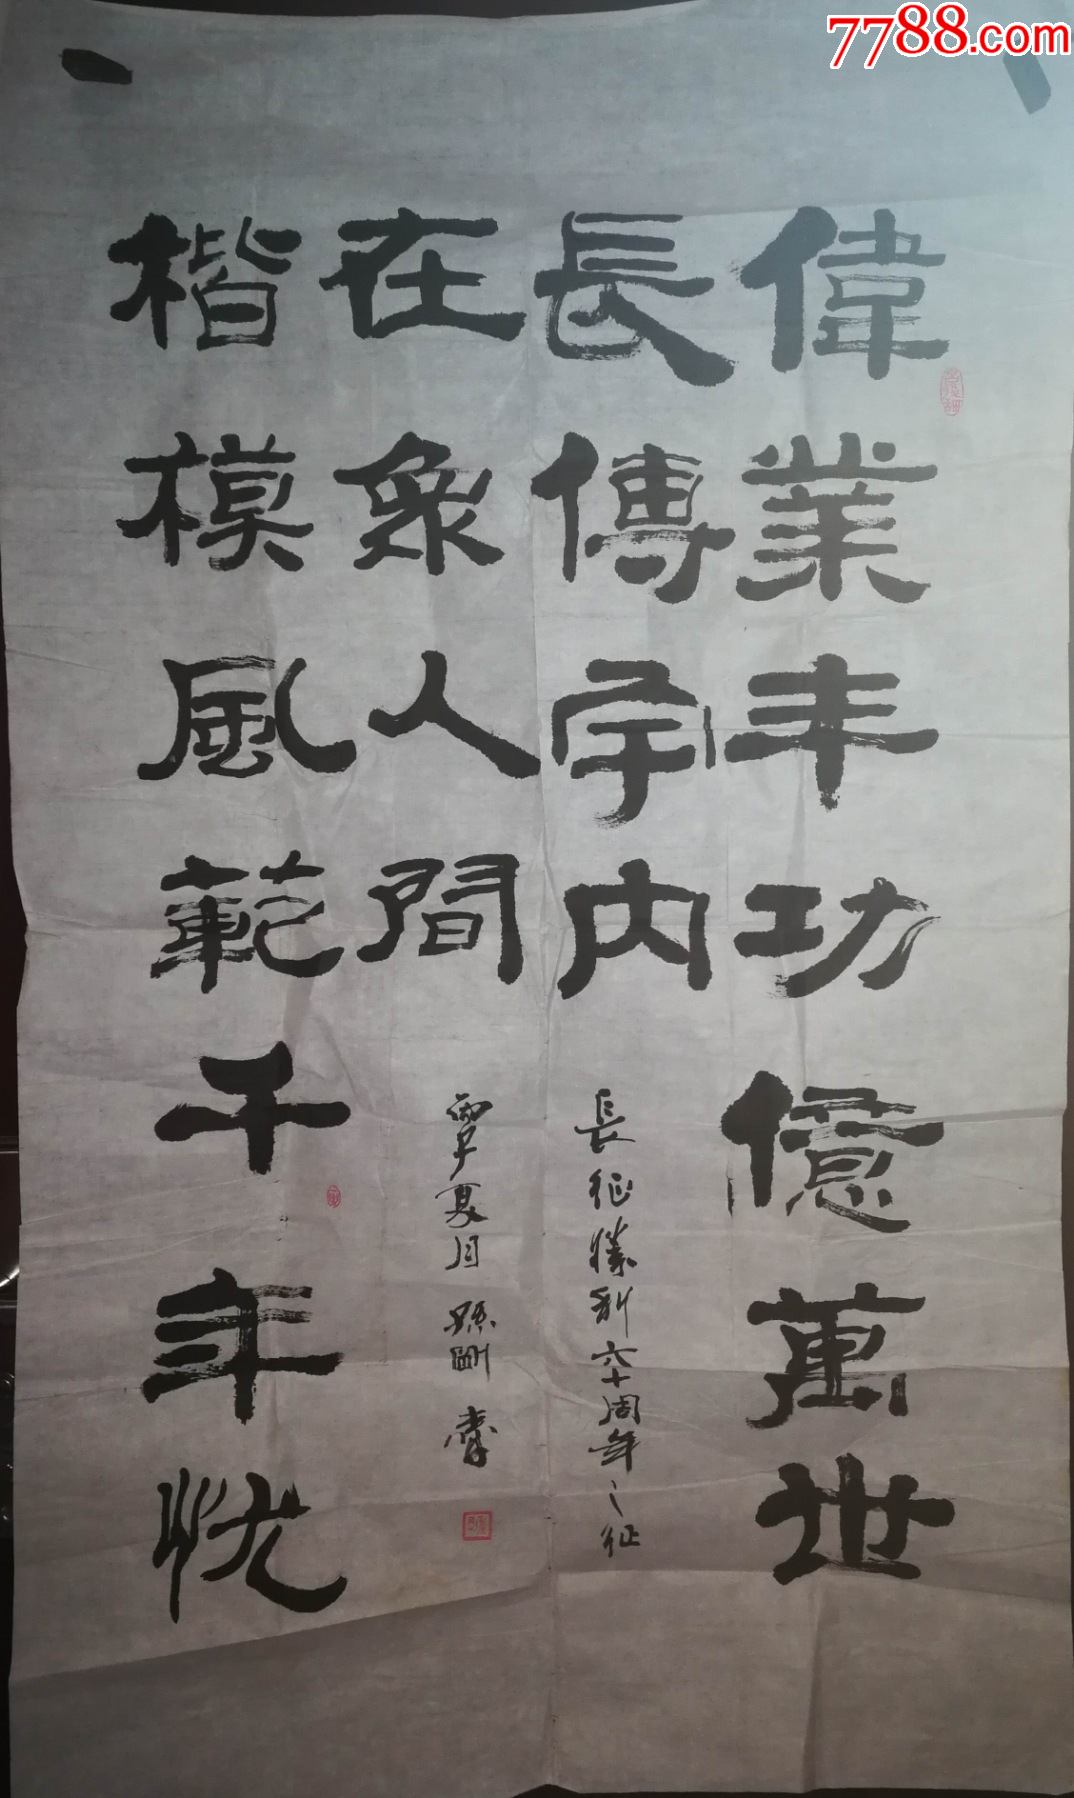 7788.com
偉業丰功億萬世
長傳宇內
長征勝利六十周年之征
楷模風範千年犹
在衆人間
丙子夏月 孫剛 書